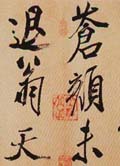 蒼顏未
退翁天